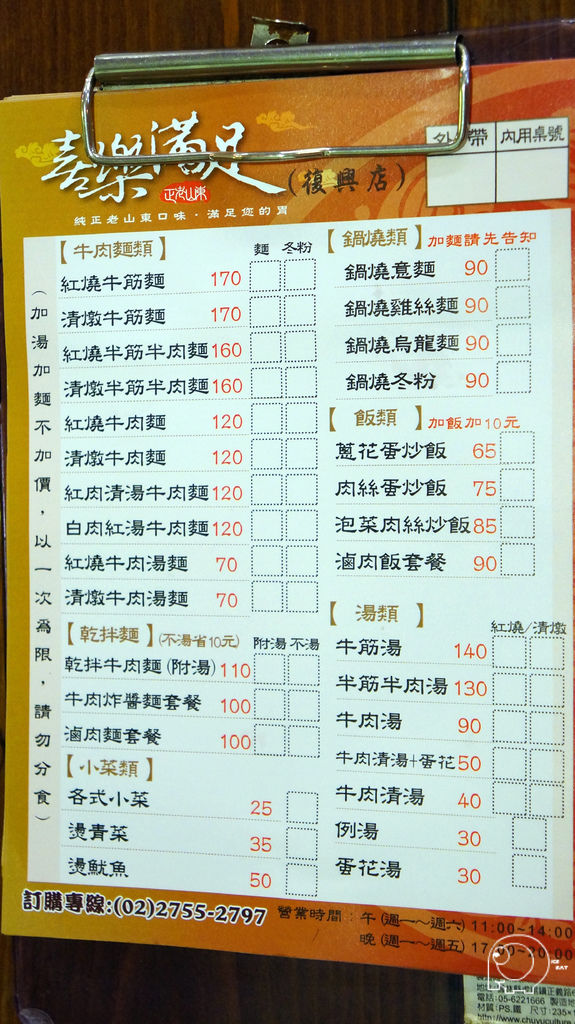 喜樂滿足
正老山東
(復興店)
純正老山東口味·滿足您的胃
外 帶
內用桌號
(加湯加麵不加價，以一次為限，請勿分食)
【牛肉麵類】 麵 冬粉
紅燒牛筋麵 170
清燉牛筋麵 170
紅燒半筋半肉麵 160
清燉半筋半肉麵 160
紅燒牛肉麵 120
清燉牛肉麵 120
紅肉清湯牛肉麵 120
白肉紅湯牛肉麵 120
紅燒牛肉湯麵 70
清燉牛肉湯麵 70
【乾拌麵】(不湯省10元) 附湯 不湯
乾拌牛肉麵(附湯) 110
牛肉炸醬麵套餐 100
滷肉麵套餐 100
【小菜類】
各式小菜 25
燙青菜 35
燙魷魚 50
【鍋燒類】加麵請先告知
鍋燒意麵 90
鍋燒雞絲麵 90
鍋燒烏龍麵 90
鍋燒冬粉 90
【飯類】加飯加10元
蔥花蛋炒飯 65
肉絲蛋炒飯 75
泡菜肉絲炒飯 85
滷肉飯套餐 90
【湯類】
紅燒/清燉
牛筋湯 140
半筋半肉湯 130
牛肉湯 90
牛肉清湯+蛋花 50
牛肉清湯 40
例湯 30
蛋花湯 30
訂購專線:(02)2755-2797
營業時間：午(週一～週六) 11:00~14:00
晚(週一～週五) 17:00~20:00
ICE
EAT
電話:05-6221666
材質:PS.鐵 尺寸:235×
http://www.chuyuculture